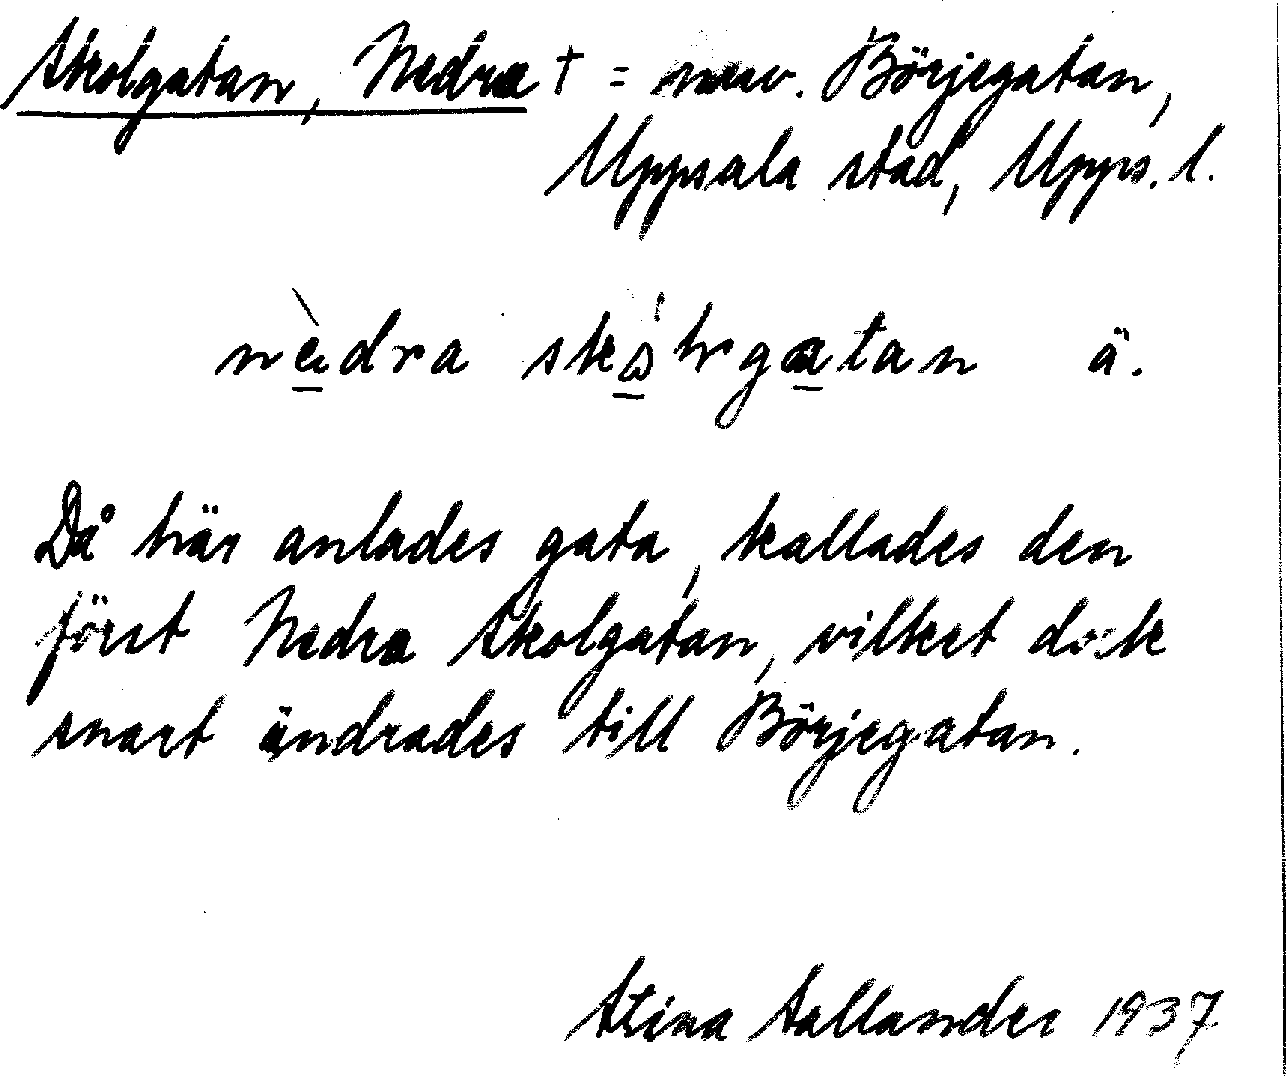 Skolgatan, Nedra † = nuv. Börjegatan,
Uppsala stad, Upps. l.
nèdra skǿlgatan ä.
Då här anlades gata, kallades den
först Nedra Skolgatan, vilket dock
snart ändrades till Börjegatan.
Stina Sallander 1937